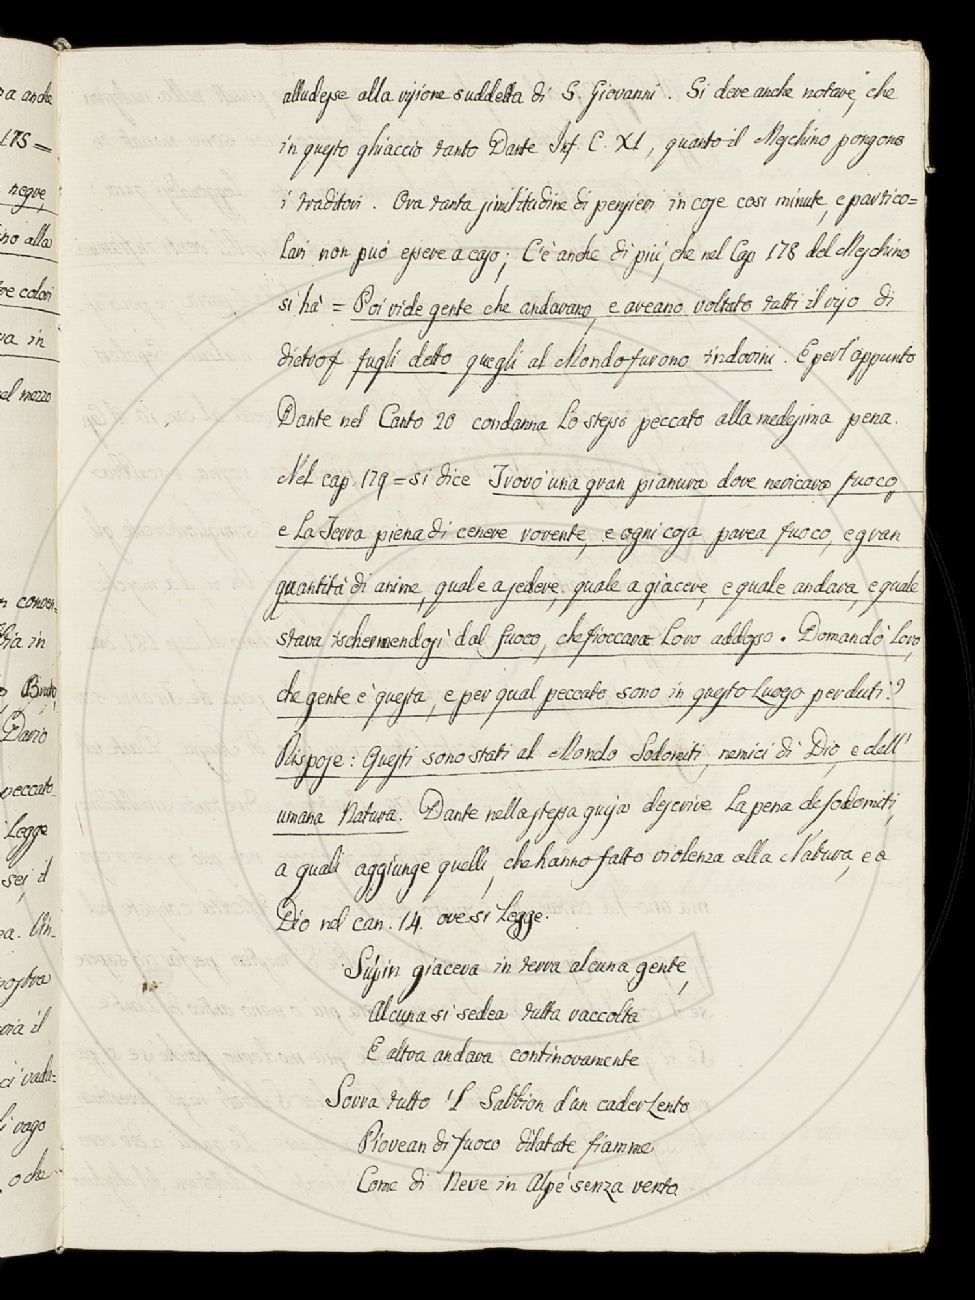 alludesse alla visione suddetta di S. Giovanni. Si deve anche notare, che
in questo ghiaccio tanto Dante Inf. C. XI, quanto il Meschino pongono
i traditori. Ora tanta similitudine di pensieri in cose cosi minute, e partico=
lari non può essere a caso; C'è anche di più, che nel Cap 178 del Meschino
si hà = Poi vide gente che andavano, e aveano voltato tutti il viso di
dietro fugli detto quegli al Mondo furono indovini. E perl'appunto
Dante nel Canto 20 condanna Lo stesso peccato alla medesima pena.
Nel cap. 179 = si dice Trovò una gran pianura dove nevicava fuoco,
e La Terra piena di cenere rovente, e ogni cosa parea fuoco, e gran
quantità di anime, quale a sedere, quale a giacere, e quale andava, e quale
stava ischermendosi dal fuoco, che fioccava Loro addosso. Domandò Loro,
che gente è questa, e per qual peccato sono in questo Luogo perduti?
Rispose: Questi sono stati al Mondo Sodomiti, nemici di Dio, e dell'
umana Natura. Dante nella stessa guisa descrive La pena de sodomiti,
a quali aggiunge quelli, che hanno fatto violenza alla Natura, e a
Dio nel can. 14. ove si Legge.
Supin giaceva in terra alcuna gente,
Alcuna si sedea tutta raccolta
E altra andava continovamente
Sovra tutto 'l Sabbion d'un cader Lento
Piovean di fuoco dilatate fiamme
Come di Neve in Alpe senza vento